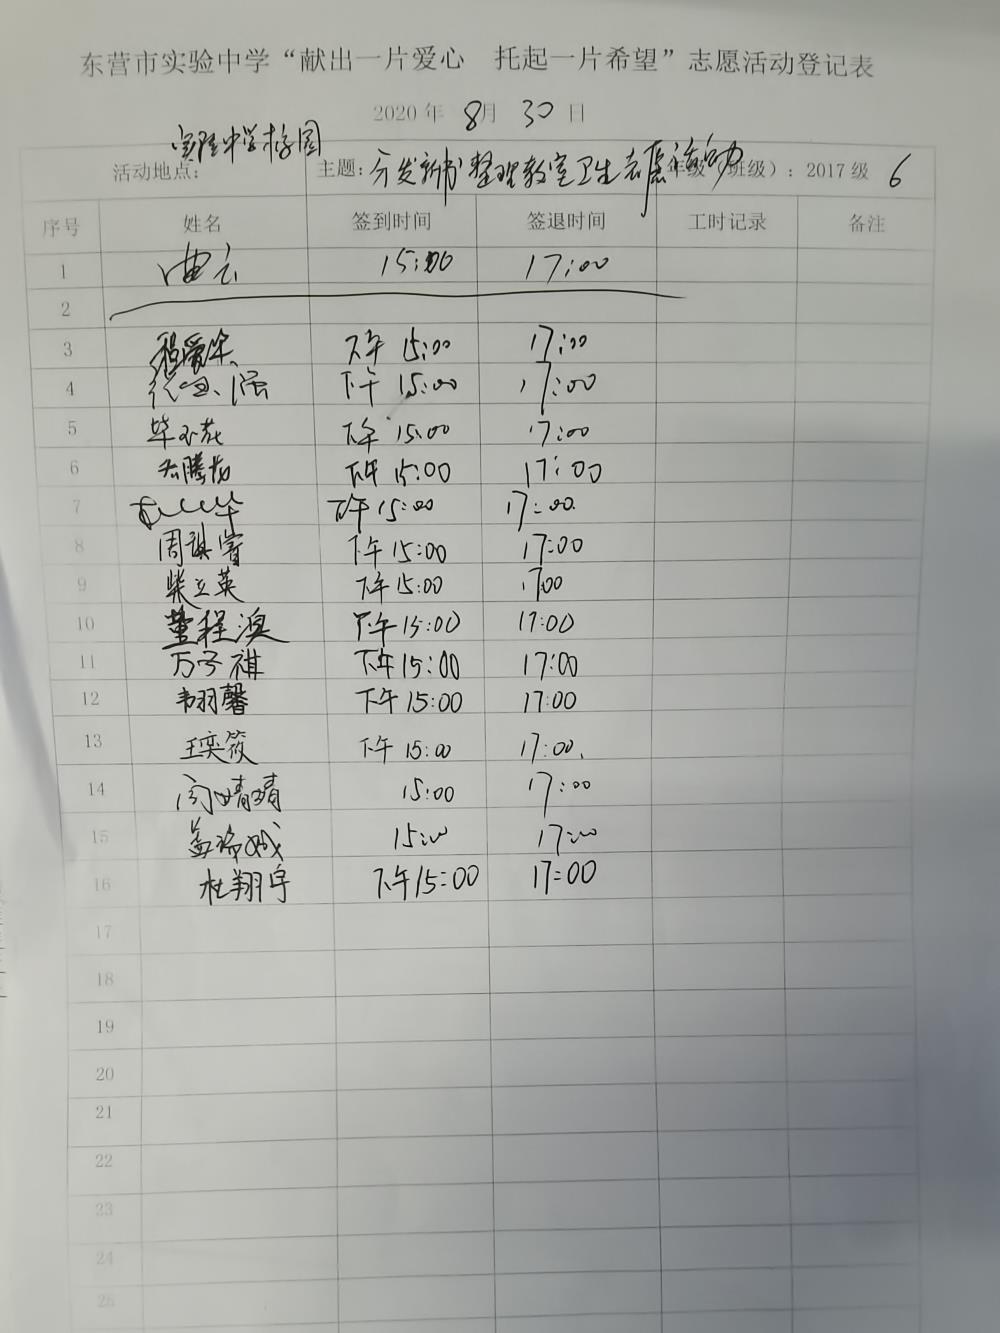 东营市实验中学“献出一片爱心 托起一片希望”志愿活动登记表
2020 年 8月 30 日
实验中学校园
活动地点： 主题：分发新书整理教室卫生志愿活动 年级（班级）：2017 级 6
序号 姓名 签到时间 签退时间 工时记录 备注
1 曲云 15:00 17:00
2
3 程爱华 下午 15:00 17:00
4 下午 15:00 17:00
5 毕玉花 下午 15:00 17:00
6 腾 下午 15:00 17:00
7 下午 15:00 17:00.
8 周琪睿 下午 15:00 17:00
9 柴立英 下午 15:00 1700
10 董程溴 下午 15:00 17:00
11 万子祺 下午 15:00 17:00
12 韦羽馨 下午 15:00 17:00
13 王奕筱 下午 15:00 17:00.
14 闫晴晴 15:00 17:00
15 盖 15:00 17:00
16 杜翔宇 下午 15:00 17:00
17
18
19
20
21
22
23
24
25